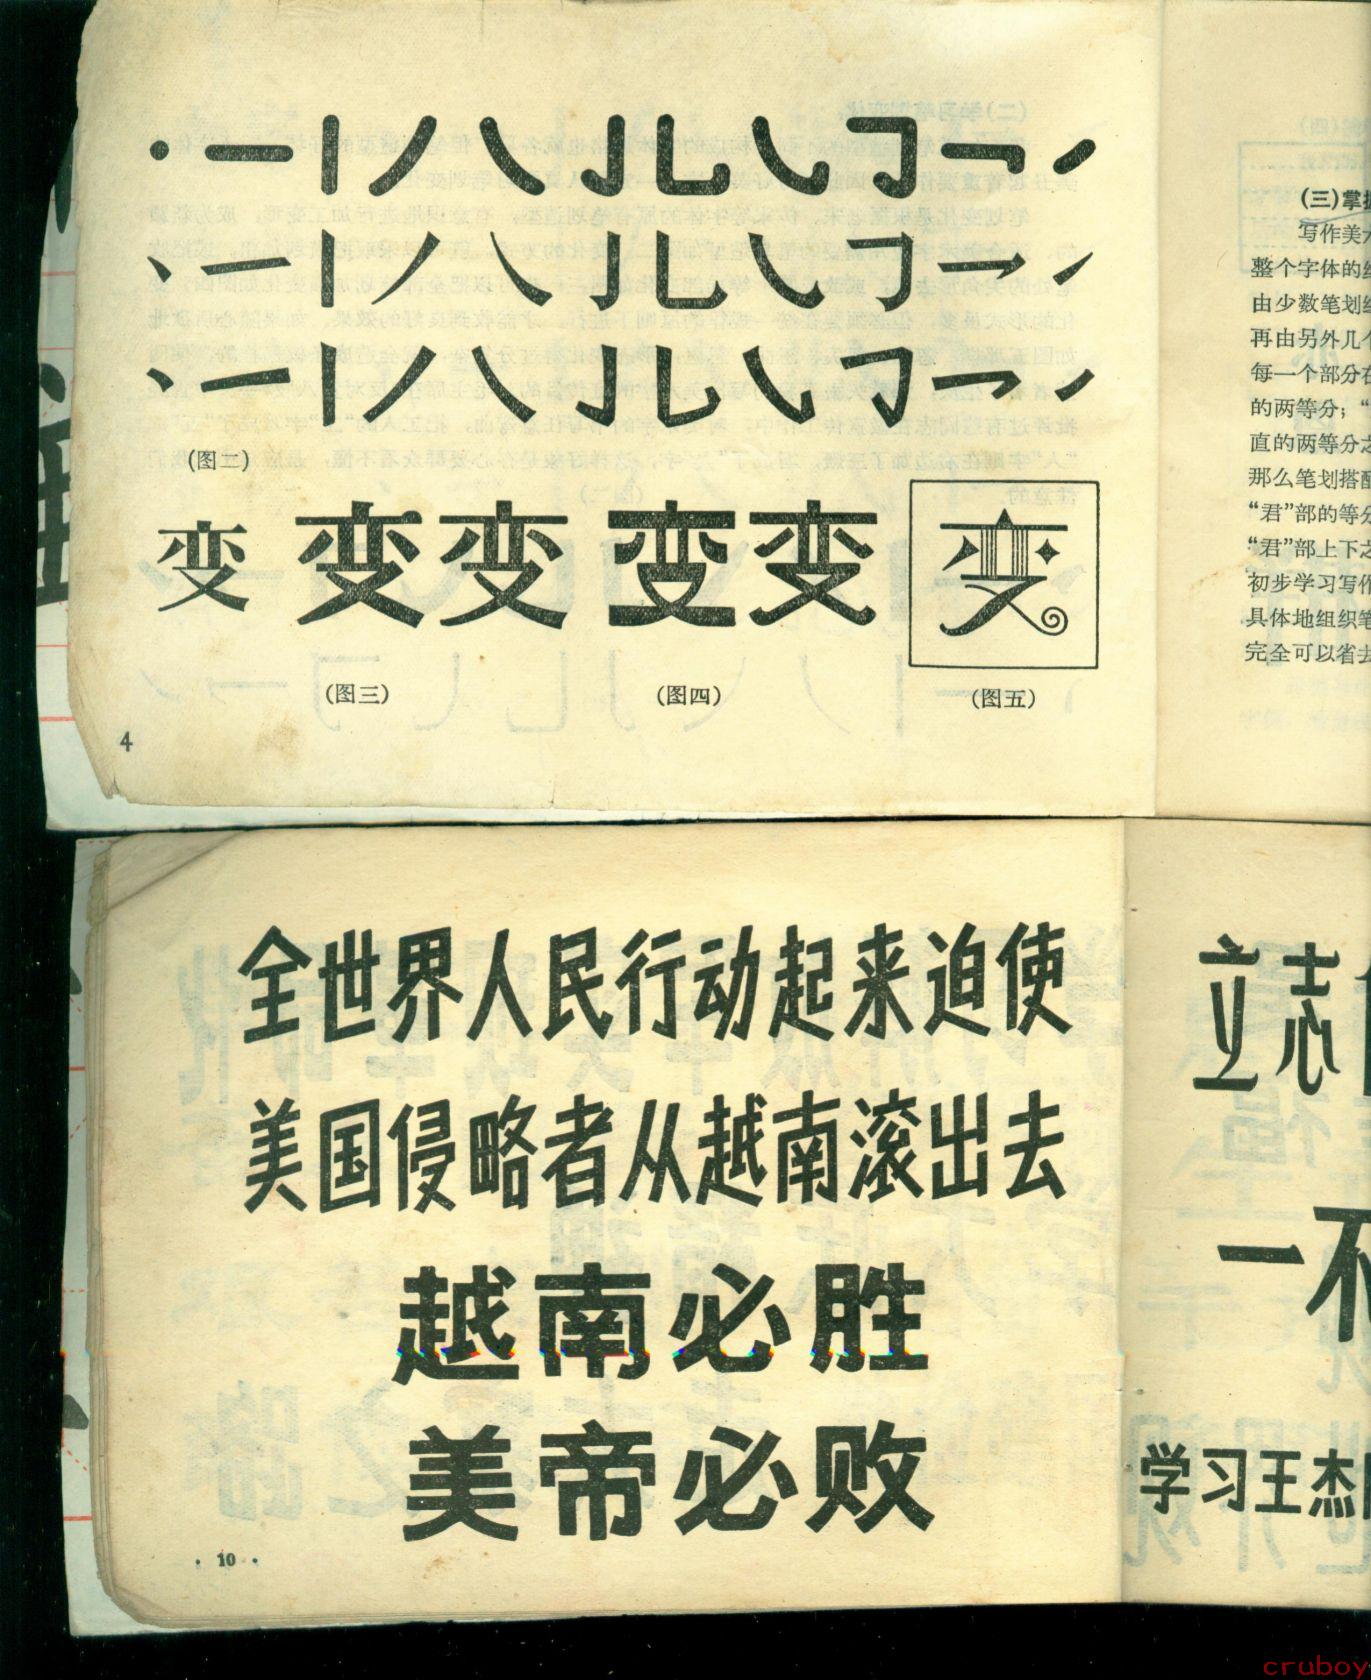 (图二)
变 变变 变变 变
(图三) (图四) (图五)
4
(三)掌
写作美
整个字体的
由少数笔划
再由另外几
每一个部分
的两等分；“
直的两等分
那么笔划搭
“君”部的等分
“君”部上下
初步学习写作
具体地组织笔
完全可以省去
全世界人民行动起来迫使
美国侵略者从越南滚出去
越南必胜
美帝必败
· 10 ·
立志
一不
学习王杰
cruboy